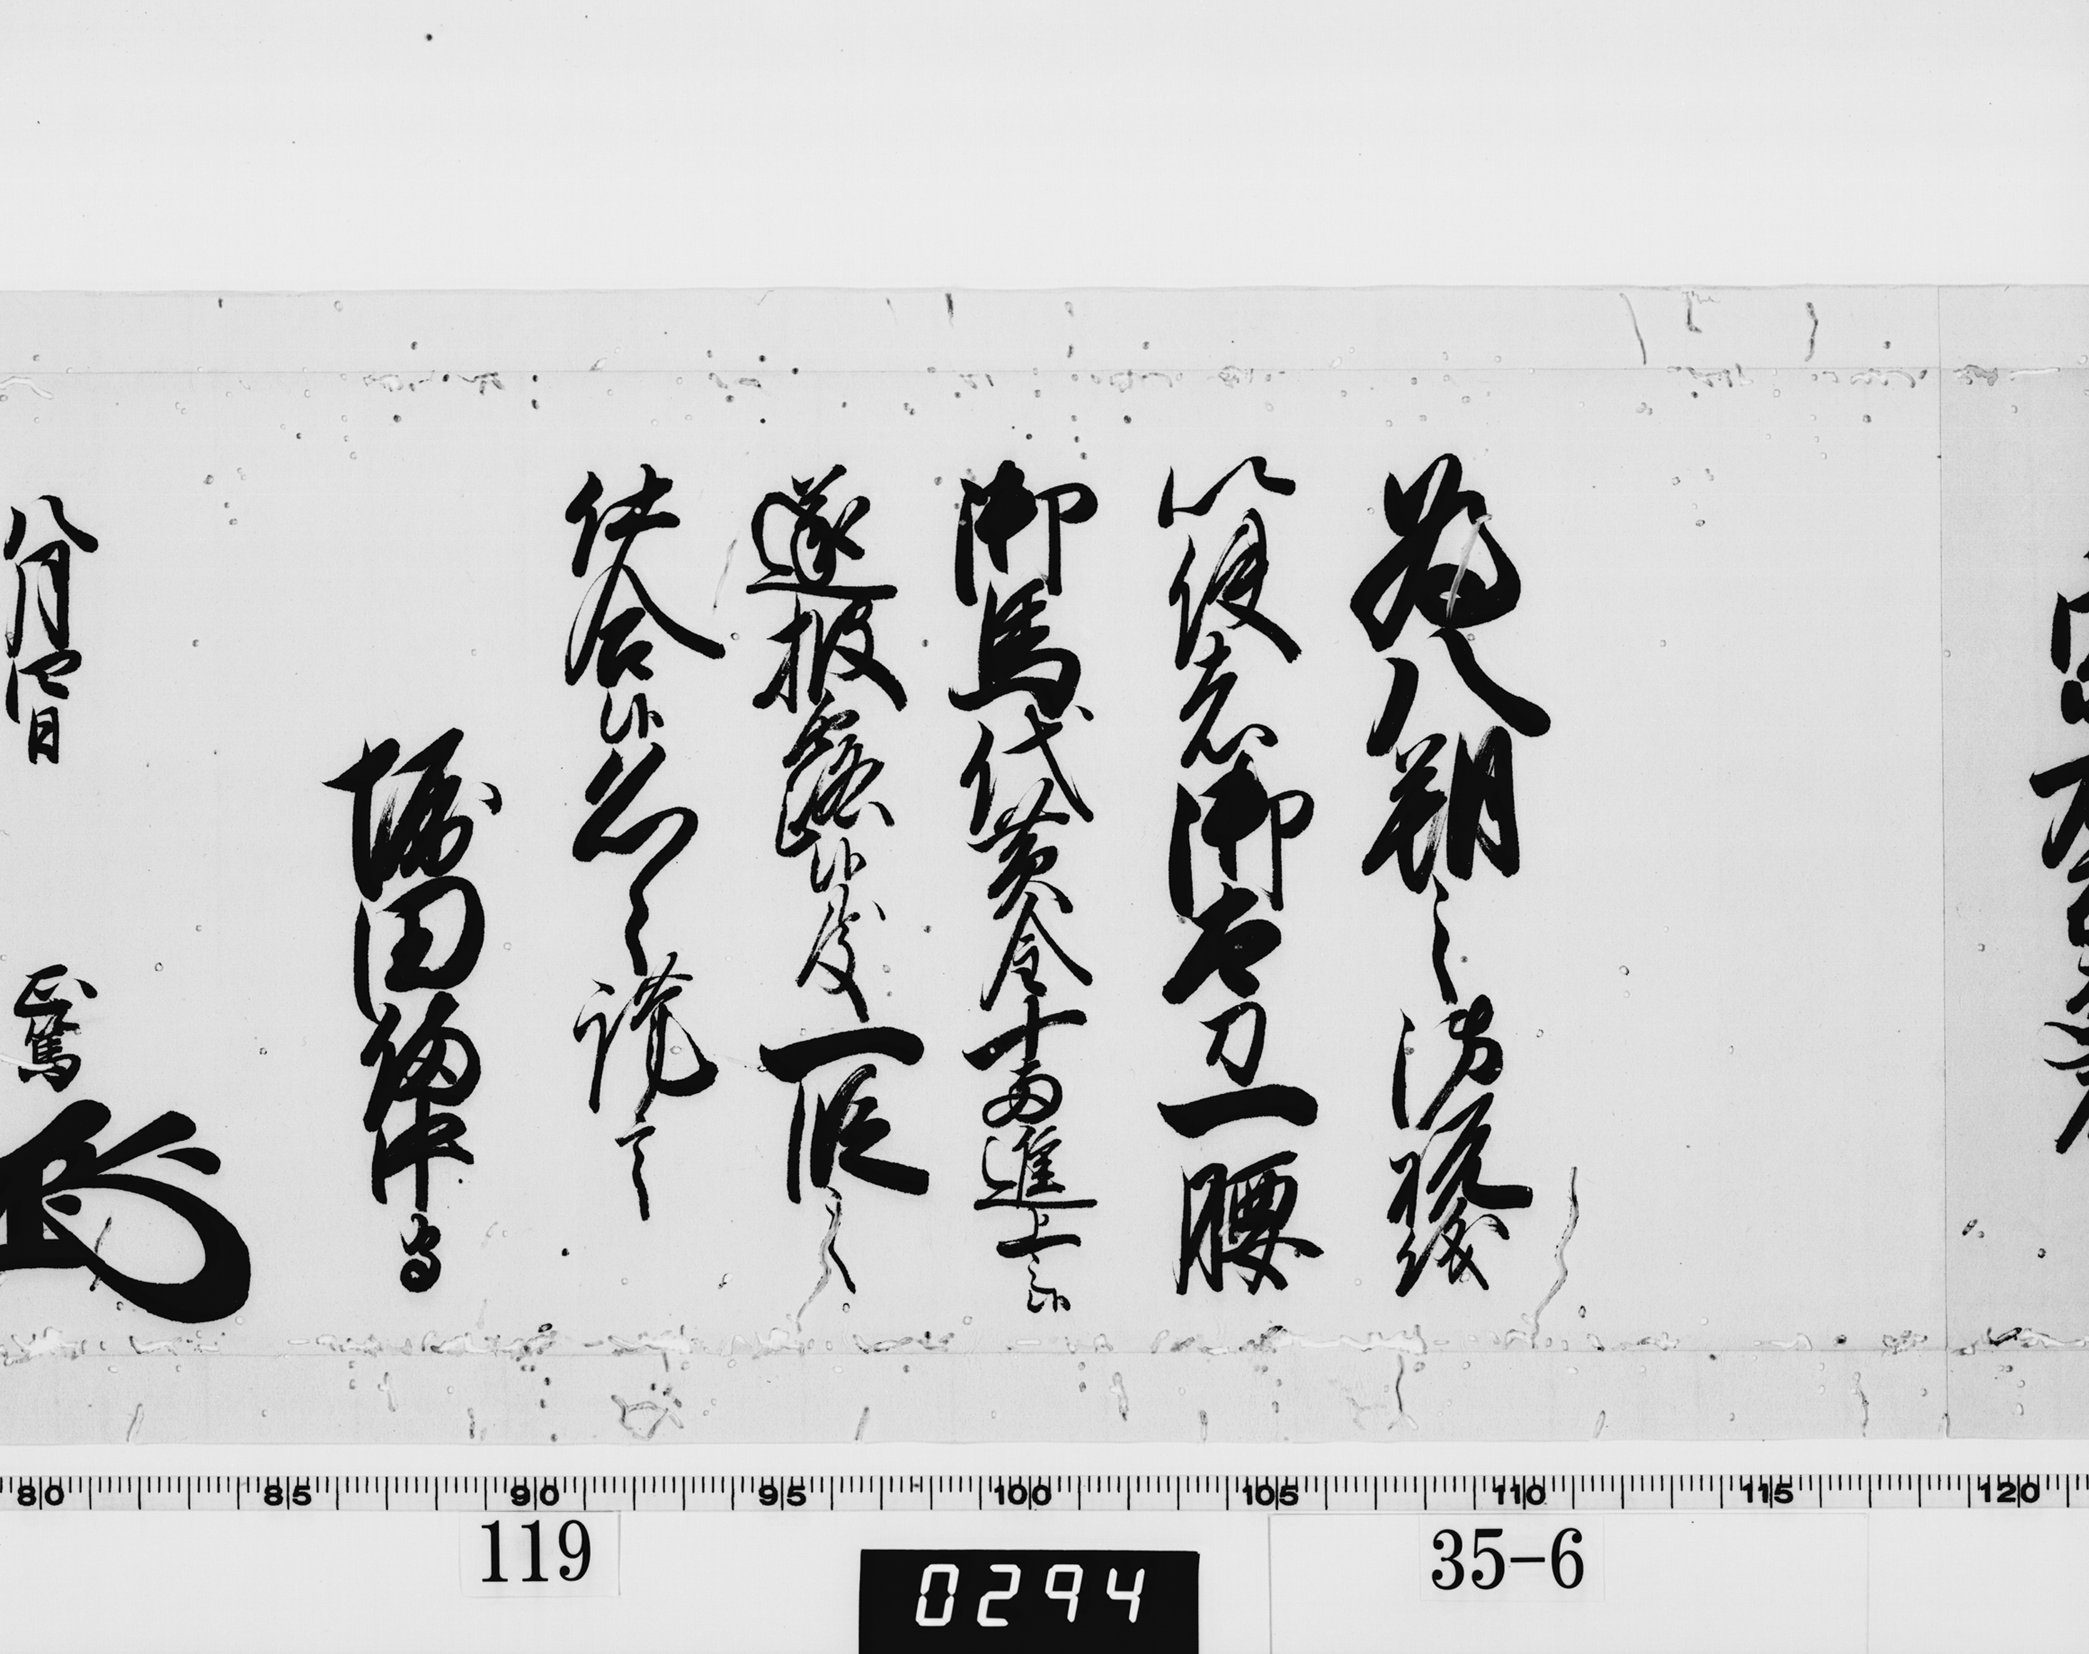 為八朔之御祝儀
以使者御太刀一腰
御馬代黄金十両進上之候
遂披露候処一段之
仕合候恐々謹言
堀田備中守
八月四日
正篤
80 85 90 95 100 105 110 115 120
119
0294
35-6